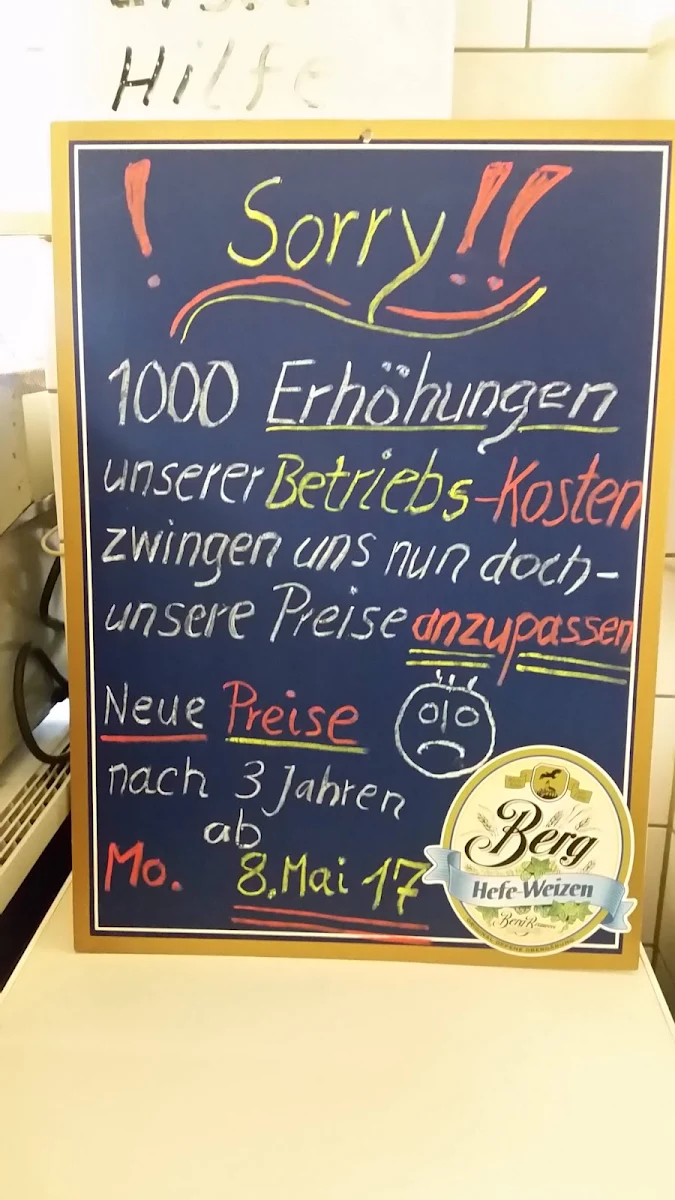 Hilfe
! Sorry !!
1000 Erhöhungen
unserer Betriebs-Kosten
zwingen uns nun doch-
unsere Preise anzupassen
Neue Preise
nach 3 Jahren
ab
Mo. 8. Mai 17
Berg
Hefe-Weizen